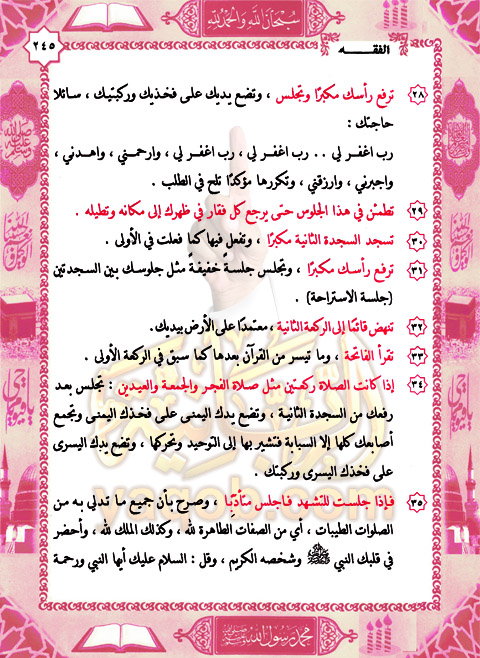 سُبْحَانَ اللَّه وَالْحَمْدُ لِلَّهِ
الفقـــه
٢٤٥
٢٨ ترفع رأسك مكبرًا وتجلس ، وتضع يديك على فخذيك وركبتيك ، سائلا
حاجتك :
رب اغفـر لى . . رب اغفر لى ، رب اغفر لى ، وارحمـنى ، واهـدنى ،
واجبرنى ، وارزقنى ، وتكررها مؤكدًا تلح في الطلب .
٢٩ تطمئن في هذا الجلوس حتى يرجع كل فقار في ظهرك إلى مكانه وتطيله .
٣٠ تسجد السجدة الثانية مكبرًا ، وتفعل فيها كما فعلت في الأولى .
٣١ ترفع رأسك مكبرًا ، وتجلس جلسةً خفيفةً مثل جلوسك بين السجدتين
(جلسة الاستراحة) .
٣٢ تنهض قائمًا إلى الركعة الثانية ، معتمدًا على الأرض بيديك.
٣٣ تقرأ الفاتحة ، وما تيسر من القرآن بعدها كما سبق في الركعة الأولى .
٣٤ إذا كانت الصلاة ركعتين مثل صلاة الفجر والجمعة والعيدين : تجلس بعد
رفعك من السجدة الثانية ، وتضع يدك اليمنى على فخذك اليمنى وتجمع
أصابعك كلها إلا السبابة فتشير بها إلى التوحيد وتحركها ، وتضع يدك اليسرى
على فخذك اليسرى وركبتك .
٣٥ فإذا جلست للتشهد فاجلس متأدبًا ، وصرح بأن جميع ما تدلى به من
الصلوات الطيبات ، أي من الصفات الطاهرة لله ، وكذلك الملك لله ، وأحضر
في قلبك النبي ﷺ وشخصه الكريم ، وقل : السلام عليك أيها النبي ورحمة
محمد رسول الله ﷺ